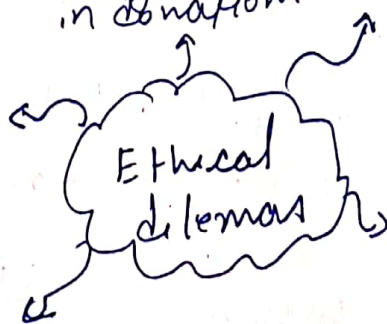 in donation
Ethical
dilemas